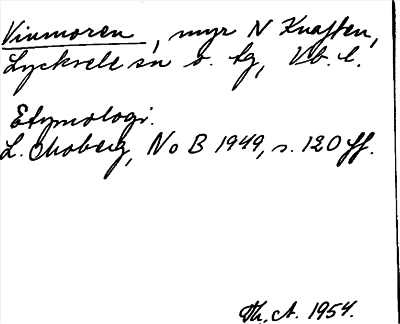 Vinmoren, myr N Knaften,
Lycksele sn o. tg, Vb. l.
Etymologi.
L. Moberg, No B 1949, s. 120 ff.
Th. A. 1954.